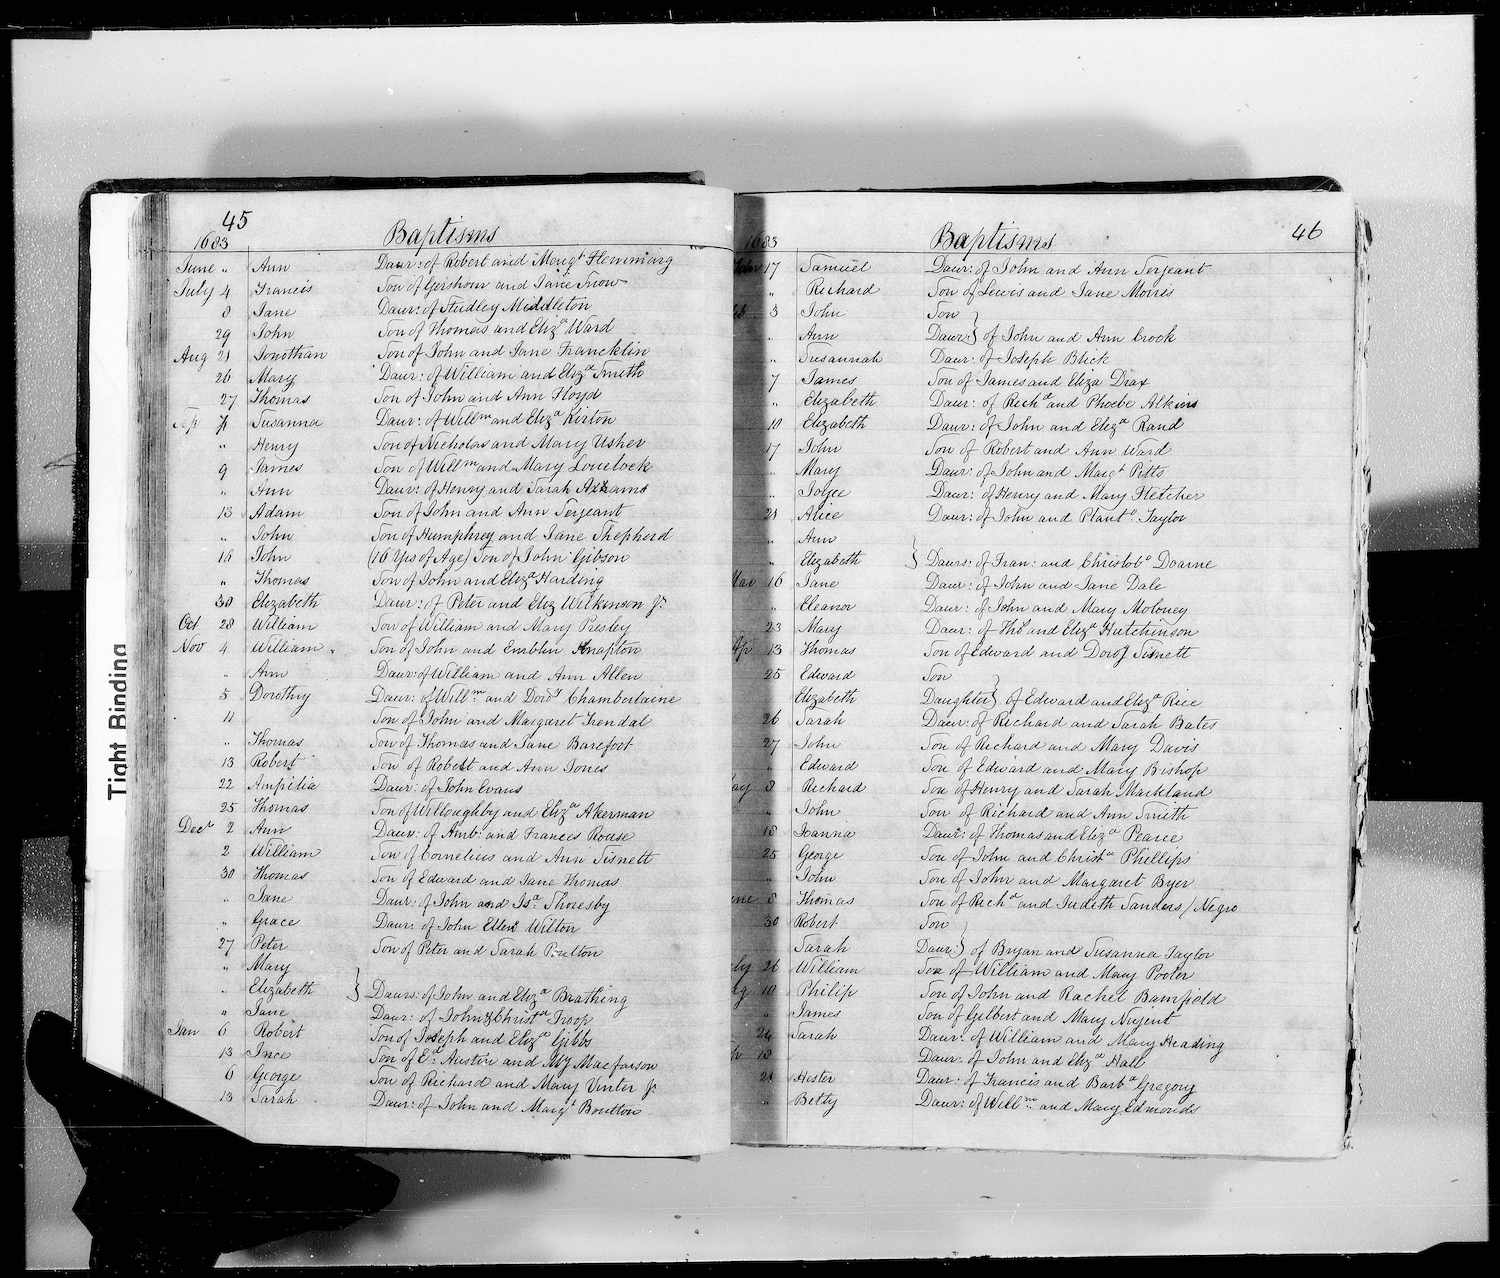 45
Baptisms
1683
June " Ann Daur: of Robert and Margt Flemming
July 4 Francis Son of Gershom and Jane Snow
8 Jane Daur: of Studley Middleton
29 John Son of Thomas and Eliza Ward
Aug 21 Jonothan Son of John and Jane Francklin
26 Mary Daur: of William and Eliza Smith
27 Thomas Son of John and Ann Floyd
Susanna Daur: of Willm and Eliza Kirton
" Henry Son of Nicholas and Mary Usher
9 James Son of Willm and Mary Lovelock
" Ann Daur: of Henry and Sarah
13 Adam Son of John and Ann Serjeant
" John Son of Humphrey and Jane Shepherd
16 John (16 Yrs of Age) Son of John Gibson
" Thomas Son of John and Eliza Harding
30 Elizabeth Daur: of Peter and Eliz Wilkinson Jr
Oct 28 William Son of William and Mary Presley
Nov 4 William Son of John and Emblin Knapton
" Ann Daur: of William and Ann Allen
5 Dorothy Daur: of Willm and Doroy Chamberlaine
11 Son of John and Margaret Kendal
" Thomas Son of Thomas and Jane Barefoot
13 Robert Son of Robert and Ann Jones
22 Amphilia Daur: of John Evans
25 Thomas Son of Willoughby and Eliza Akerman
Decr 2 Ann Daur: of Amb: and Frances Rouse
2 William Son of Cornelius and Ann Sisnett
30 Thomas Son of Edward and Jane Thomas
" Jane Daur: of John and Isa: Thoresby
" Grace Daur: of John Ellen Wilton
27 Peter Son of Peter and Sarah Poulton
" Mary
" Elizabeth } Daurs: of John and Eliza Brathing
" Jane Daur: of John & Christn Troop
Jan 6 Robert Son of Joseph and Eliza Gibbs
13 Ince Son of Ed: Austin and My Macfarson
6 George Son of Richard and Mary Vinter Jr
13 Sarah Daur: of John and Margt Boulton
46
Baptisms
1683
17 Samuel Daur: of John and Ann Serjeant
" Richard Son of Lewis and Jane Morris
3 John Son
" Ann Daur: } of John and Ann Crock
" Susannah Daur: of Joseph Blick
7 James Son of James and Eliza Drax
" Elizabeth Daur: of Richd and Phoebe Alkins
10 Elizabeth Daur: of John and Eliza Rand
17 John Son of Robert and Ann Ward
" Mary Daur: of John and Margt Pitts
" Joyce Daur: of Henry and Mary Fletcher
21 Alice Daur: of John and Planta. Taylor
" Ann
" Elizabeth } Daurs: of Fran: and Christoba Doarne
Mar 16 Jane Daur: of John and Jane Dale
" Eleanor Daur: of John and Mary Moloney
23 Mary Daur: of Tho and Eliza Hutchinson
Ap 13 Thomas Son of Edward and Doroy Sisnett
25 Edward Son
Elizabeth Daughter } of Edward and Eliza Rice
26 Sarah Daur: of Richard and Sarah Bates
27 John Son of Richard and Mary Davis
" Edward Son of Edward and Mary Bishop
ay 8 Richard Son of Henry and Sarah Markland
" John Son of Richard and Ann Smith
18 Joanna Daur: of Thomas and Eliza Pearce
25 George Son of John and Christn Phillips
" John Son of John and Margaret Byer
ne 8 Thomas Son of Richd and Judith Sanders / Negro
30 Robert Son
Sarah Daur: } of Bryan and Susanna Taylor
ly 26 William Son of William and Mary Pooler
g 10 Philip Son of John and Rachel Bamfield
" James Son of Gilbert and Mary Nugent
24 Sarah Daur: of William and Mary Heading
p 18 Daur: of John and Eliza Hall
21 Hester Daur: of Francis and Barba Gregory
" Betty Daur: of Willm and Mary Edmonds
Tight Binding